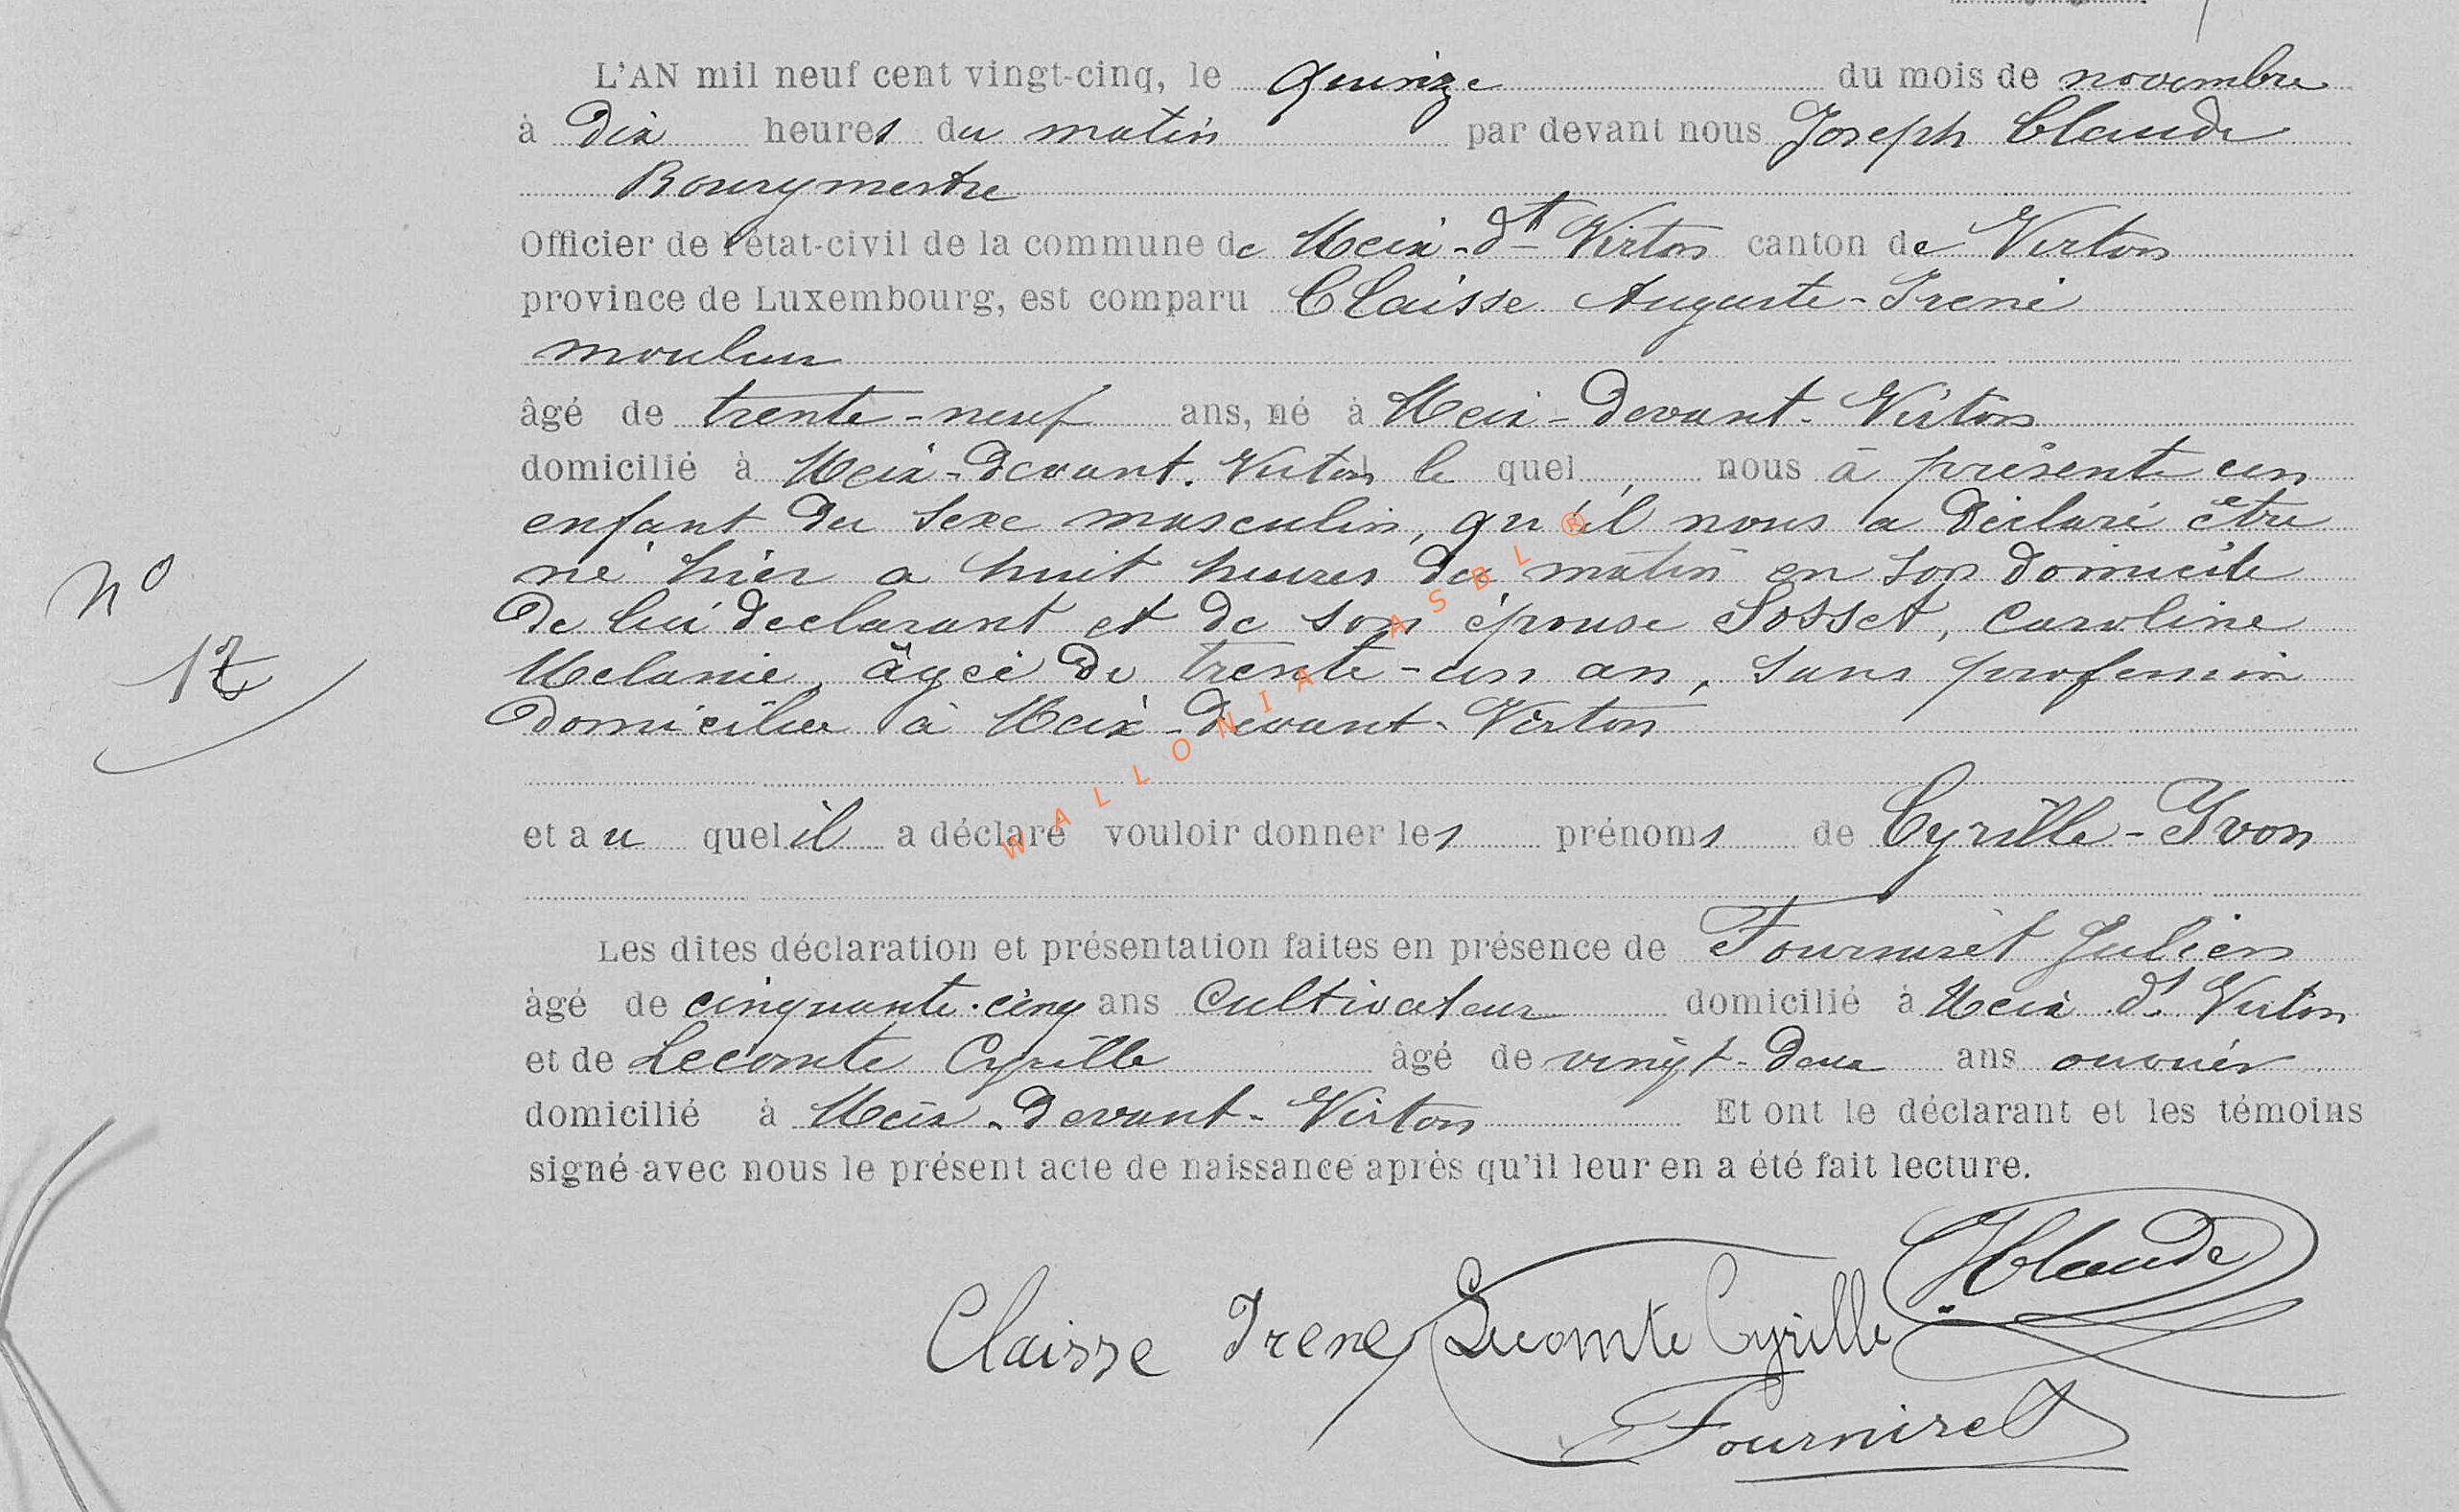 L'AN mil neuf cent vingt-cinq, le quinze du mois de novembre
à dix heures du matin par devant nous Joseph Claude
Bourgmestre
Officier de l'état-civil de la commune de Meix-dt Virton canton de Virton
province de Luxembourg, est comparu Claisse Auguste-Irené
mouleur
âgé de trente-neuf ans, né à Meix-Devant-Virton
domicilié à Meix-Devant-Virton le quel, nous à présenté un
enfant du sexe masculin, qu'il nous a déclaré être
né hier a huit heures du matin en son domicile
De lui declarant et de son épouse Sosset, Caroline
Melanie, âgeé de trente-un an, sans profession
Domiciliée à Meix-Devant-Virton
et au quel il a déclaré vouloir donner les prénoms de Cyrille-Yvon
Les dites déclaration et présentation faites en présence de Fourniret Julien
âgé de cinquante-cinq ans Cultivateur domicilié à Meix dt Virton
et de Lecomte Cyrille âgé de vingt-deux ans ouvrier
domicilié à Meix-Devant-Virton Et ont le déclarant et les témoins
signé avec nous le présent acte de naissance après qu'il leur en a été fait lecture.
No
17
Claisse Irene Lecomte Cyrille JClaude
Fourniret
WALLONIA ASBL ®